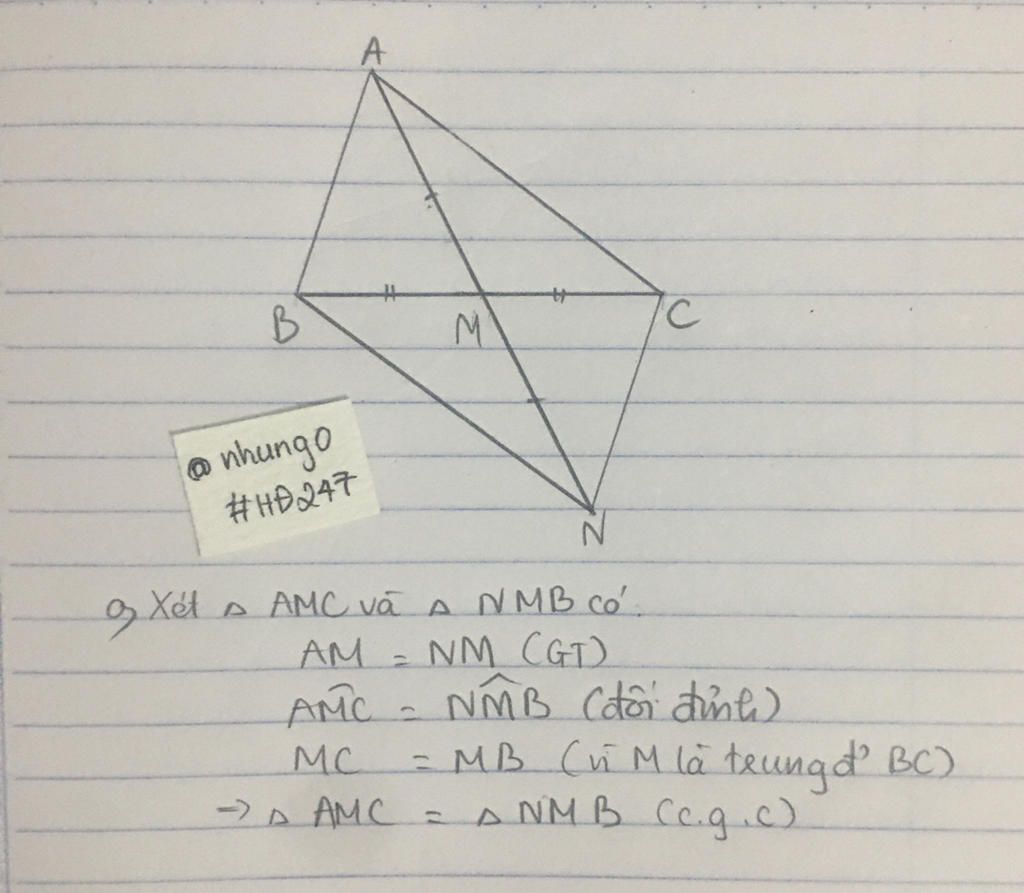 A
B
M
C
@nhung0
#HĐ247
N
a, Xét △ AMC và △ NMB có:
AM = NM (GT)
AM̂C = NM̂B (đối đỉnh)
MC = MB (vì M là trung đ' BC)
→ △ AMC = △ NMB (c.g.c)